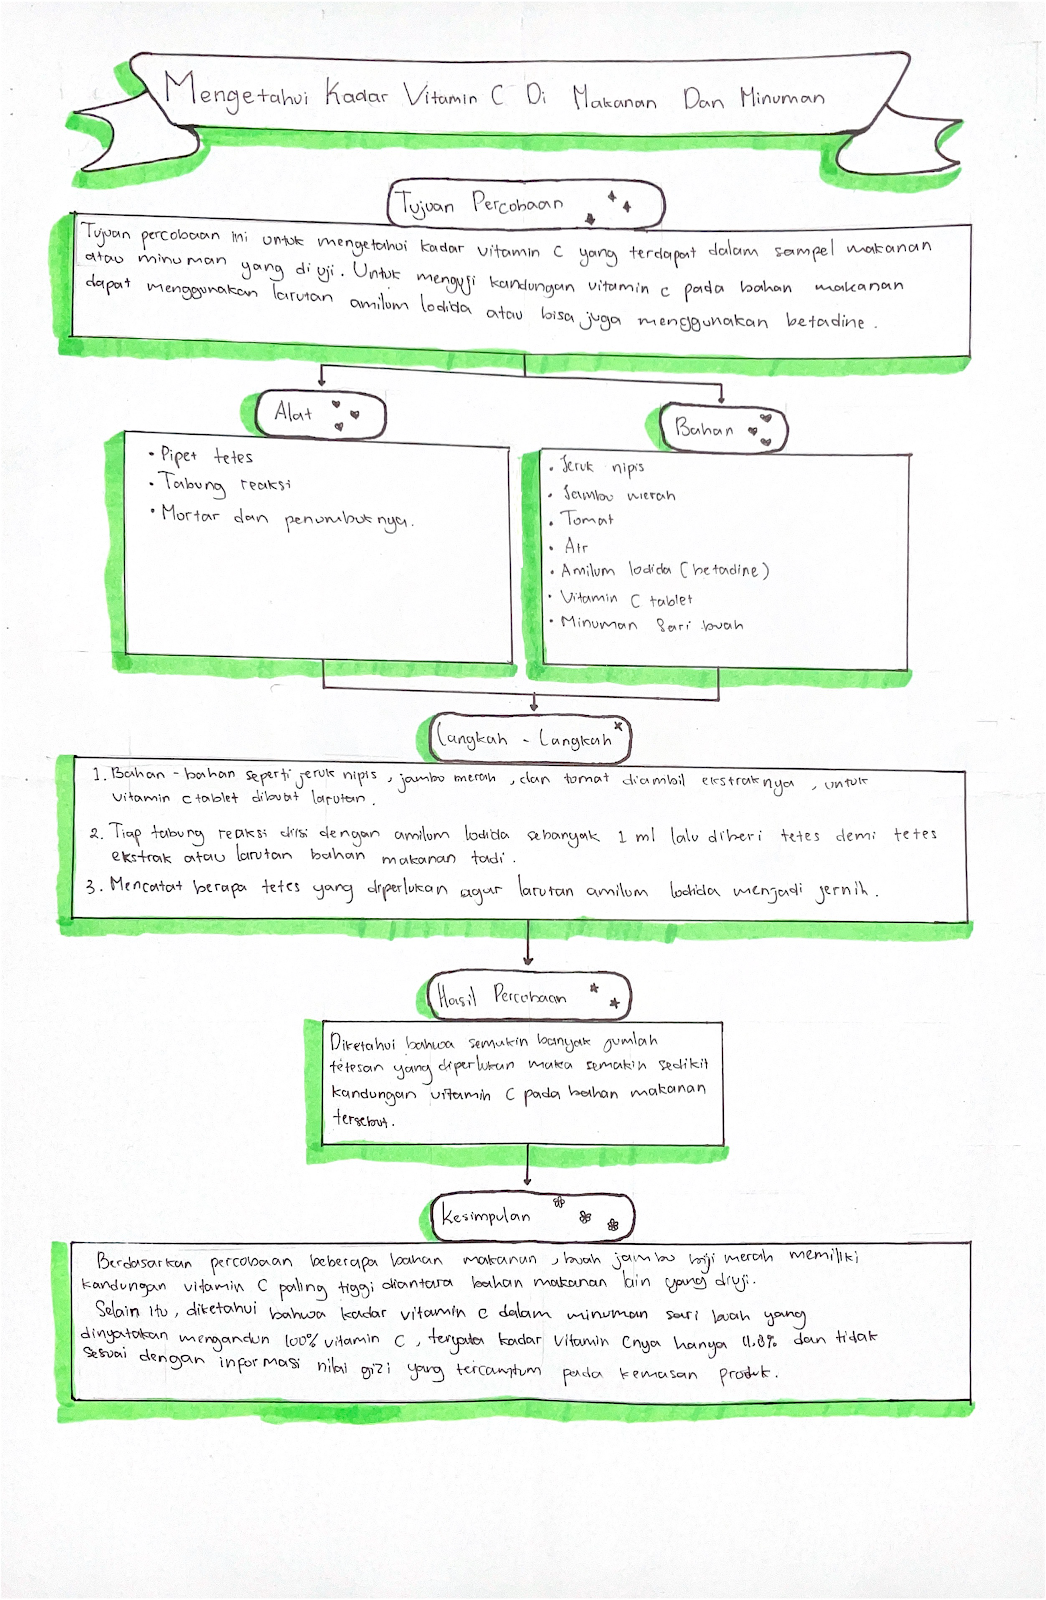 Mengetahui Kadar Vitamin C Di Makanan Dan Minuman
Tujuan Percobaan
Tujuan percobaan ini untuk mengetahui kadar vitamin C yang terdapat dalam sampel makanan
atau minuman yang di uji. Untuk menguji kandungan vitamin c pada bahan makanan
dapat menggunakan larutan amilum lodida atau bisa juga menggunakan betadine.
Alat
• Pipet tetes
• Tabung reaksi
• Mortar dan penumbuknya.
Bahan
• Jeruk nipis
• Jambu merah
• Tomat
• Air
• Amilum lodida (betadine)
• Vitamin C tablet
• Minuman Sari buah
Langkah - Langkah
1. Bahan - bahan seperti jeruk nipis, jambu merah, dan tomat diambil ekstraknya, untuk
vitamin c tablet dibuat larutan.
2. Tiap tabung reaksi diisi dengan amilum lodida sebanyak 1 ml lalu diberi tetes demi tetes
ekstrak atau larutan bahan makanan tadi.
3. Mencatat berapa tetes yang diperlukan agar larutan amilum lodida menjadi jernih.
Hasil Percobaan
Diketahui bahwa semakin banyak jumlah
tetesan yang diperlukan maka semakin sedikit
kandungan vitamin C pada bahan makanan
tersebut.
Kesimpulan
Berdasarkan percobaan beberapa bahan makanan, buah jambu biji merah memiliki
kandungan vitamin C paling tiggi diantara bahan makanan lain yang diuji.
Selain itu, diketahui bahwa kadar vitamin c dalam minuman sari buah yang
dinyatakan mengandun 100% vitamin C, teryata kadar vitamin Cnya hanya dan tidak
sesuai dengan informasi nilai gizi yang tercamtum pada kemasan produk.